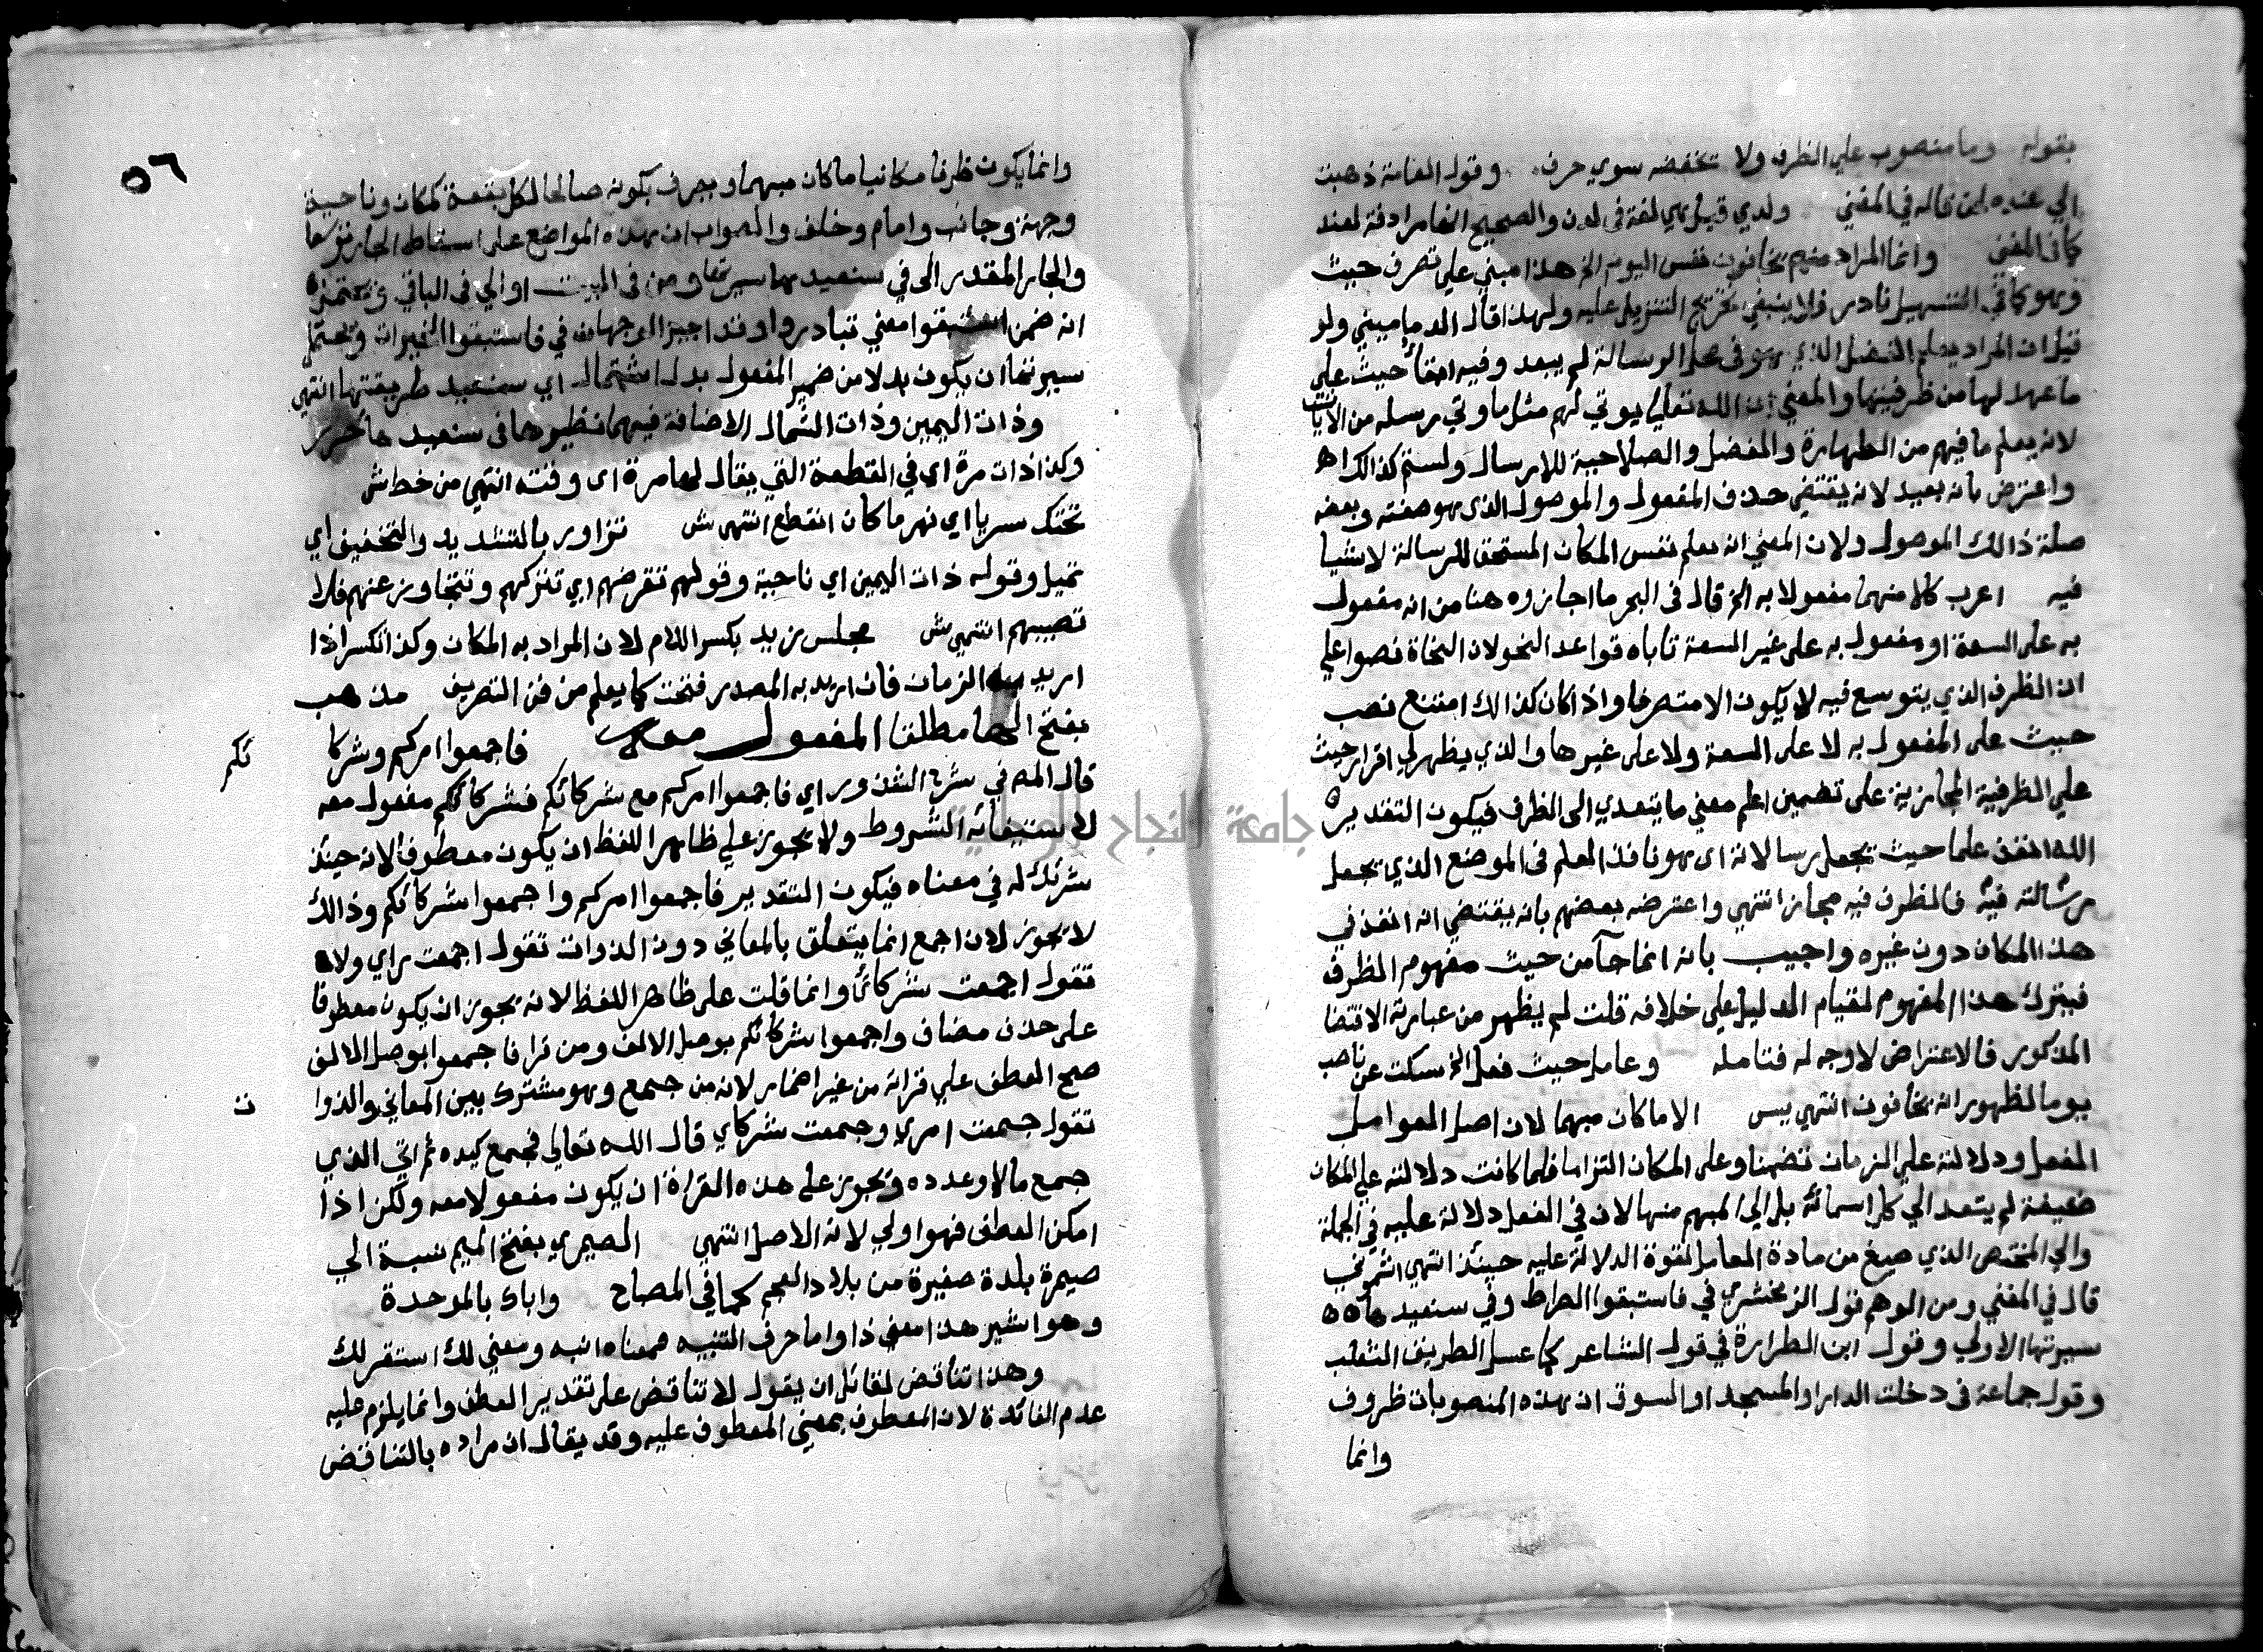 بقوله وما منصوب علي الظرف ولا تخفضه سوي حرف وقول العامة ذهبت
الي عنده لحن قاله في المغني ولدي قيل هي لغة في لدن والصحيح انها مرادفة لعند
كما في المغني وانما المراد منهم يخافون نفس اليوم الخ هذا مبني علي تصرف حيث
وهو كما في التسهيل نادر فلا ينبغي تخريج التنزيل عليه ولهذا قال الدماميني ولو
قيل ان المراد يعلم الفضل الذي هو في محل الرسالة لم يبعد وفيه ابقاء حيث علي
ما عهد لها من ظرفيتها والمعني ان الله تعالي لا يوتي لهم مثل ما وتي رسله من الايات
لانه يعلم ما فيهم من الطهارة والفضل والصلاحية للارسال ولستم كذالك اه
واعترض بانه بعيد لانه يقتضي حذف المفعول والموصول الذي هو صفته وبعض
صلة ذالك الموصول ولان المعني انه يعلم نفس المكان المستحق للرسالة لا شيا
فيه اعرب كلا منهما مفعولا به الخ قال في البحر ما اجازوه هنا من انه مفعول
به علي السعة او مفعول به علي غير السعة تاباه قواعد النحو لان النحاة نصوا علي
ان الظرف الذي يتوسع فيه لا يكون الا متصرفا واذا كان كذالك امتنع نصب
حيث علي المفعول به لا علي السعة ولا علي غيرها والذي يظهر لي اقرار حيث
علي الظرفية المجازية علي تضمين اعلم معني ما يتعدي الي الظرف فيكون التقدير
الله انفذ علما حيث يجعل رسالاته اي هو نافذ العلم في الموضع الذي يجعل
رسالته فيه فالظرف فيه مجاز انتهي واعترضه بعضهم بانه يقتضي انه انفذ في
هذا المكان دون غيره واجيب بانه انما جآ من حيث مفهوم الظرف
فيترك هذا المفهوم لقيام الدليل علي خلافه قلت لم يظهر من عبارته الاقتضا
المذكور فالاعتراض لا وجه له فتامله وعامل حيث فعل الخ سكت عن ناصب
يوما لظهور انه يخافون انتهي يس الا ما كان مبهما لان اصل العوامل
الفعل ودلالته علي الزمان تضمنا وعلي المكان التزاما فلما كانت دلالته علي المكان
ضعيفة لم يتعد الي كل اسمائه بل الي المبهم منها لان في الفعل دلالة عليه في الجملة
والي المختص الذي صيغ من مادة العامل لقوة الدلالة عليه حينئذ انتهي اشموني
قال في المغني ومن الوهم قول الزمخشري في فاستبقوا الصراط وفي سنعيدها
سيرتها الاولي وقول ابن الطراوة في قول الشاعر كما عسل الطريق الثعلب
وقول جماعة في دخلت الدار او المسجد او السوق ان هذه المنصوبات ظروف
وانما
٥٦
وانما يكون ظرفا مكانيا ما كان مبهما ويعرف بكونه صالحا لكل بقعة كمكان وناحية
وجهة وجانب وامام وخلف والصواب ان هذه المواضع علي اسقاط الجار توسعا
والجار المقدر الي في سنعيدها سيرتها وفي في البيت او الي في الباقي ويحتمل
انه ضمن استبقوا معني تبادروا وقد اجيز الوجهان في فاستبقوا الخيرات ويحتمل
سيرتها ان يكون بدلا من ضمير المفعول بدل اشتمال اي سنعيد طريقتها انتهي
وذات اليمين وذات الشمال الاضافة فيهما نظيرها في سعيد
وكذا ذات مرة اي في القطعة التي يقال لها مرة اي وقته انتهي من خط ش
تحتك سريا اي نهر ما كان انقطع انتهي ش تزاور بالتشديد والتخفيف اي
تميل وقوله ذات اليمين اي ناحية وقولهم تقرضهم اي تتركهم وتتجاوز عنهم فلا
تصيبهم انتهي ش مجلس زيد بكسر اللام لان المراد به المكان وكذا تكسر اذا
اريد به الزمان فان اريد به المصدر فتحت كما يعلم من فن التصريف مذهب
بفتح الها مطلقا المفعول معه فاجمعوا امركم وشركا
ئكم
قال المص في شرح الشذور اي فاجمعوا امركم مع شركائكم فشركائكم مفعول معه
لاستيفائه الشروط ولا يجوز علي ظاهر اللفظ ان يكون معطوفا لانه حينئذ
شريك له في معناه فيكون التقدير فاجمعوا امركم واجمعوا شركائكم وذالك
لا يجوز لان اجمع انما يتعلق بالمعاني دون الذوات تقول اجمعت راي ولا
تقول اجمعت شركائي وانما قلت علي ظاهر اللفظ لانه يجوز ان يكون معطوفا
علي حذف مضاف واجمعوا شركائكم بوصل الالف ومن قرا فاجمعوا بوصل الالف
صح العطف علي قراته من غير اضمار لانه من جمع وهو مشترك بين المعاني والذوا
ت
تقول جمعت امري وجمعت شركاي قال الله تعالي فجمع كيده ثم اتي الذي
جمع مالا وعدده ويجوز علي هذه القراة ان يكون مفعولا معه ولكن اذا
امكن العطف فهو اولي لانه الاصل انتهي الصيمري بفتح الميم نسبة الي
صيمرة بلدة صغيرة من بلاد العجم كما في المصباح واباك بالموحدة
وهو اشير هذا معني ذا واما حرف التنبيه فمعناه انبه ومعني لك استقر لك
وهذا تناقض لقائل ان يقول لا تناقض علي تقدير العطف وانما يلزم عليه
عدم الفائدة لان المعطوف بمعني المعطوف عليه وقد يقال ان مراده بالتناقض
جامعة النجاح الوطنية